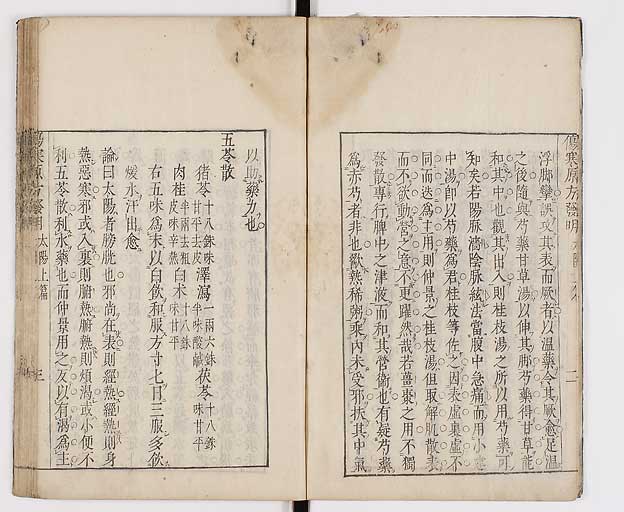 傷寒原方發明
太陽上篇
二
浮脚攣誤攻其表而厥者以溫藥令其厥愈足溫
之後隨與芍藥甘草湯以伸其脚芍藥得甘草能
和其中也觀其出入則桂枝湯之所以用芍藥可
知矣若陽脉濇陰脉絃法當腹中急痛而用小建
中湯卽以芍藥爲君桂枝等佐之因表虛裏虛不
同而迭爲主用則仲景之桂枝湯但取解肌散表
而不欲動營之意不更躍然哉若薑棗之用不獨
發散專行脾中之津液而和其營衞也有疑芍藥
爲赤芍者非也歠熱稀粥乘內未受邪扶其中氣
以助藥力也
五苓散
猪苓十八銖味甘平去皮 澤瀉一兩六銖半味酸鹹 茯苓十八銖味甘平
肉桂半兩去粗皮味辛熱 白术十八銖味甘平
右五味爲末以白飲和服方寸七日三服多飲
煖水汗出愈
論曰太陽者膀胱也邪尚在表則經熱經熱則身
熱惡寒邪或入裏則腑熱腑熱則煩渴或小便不
利五苓散利水藥也而仲景用之反以有渴爲主
傷寒原方發明
太陽上篇
三